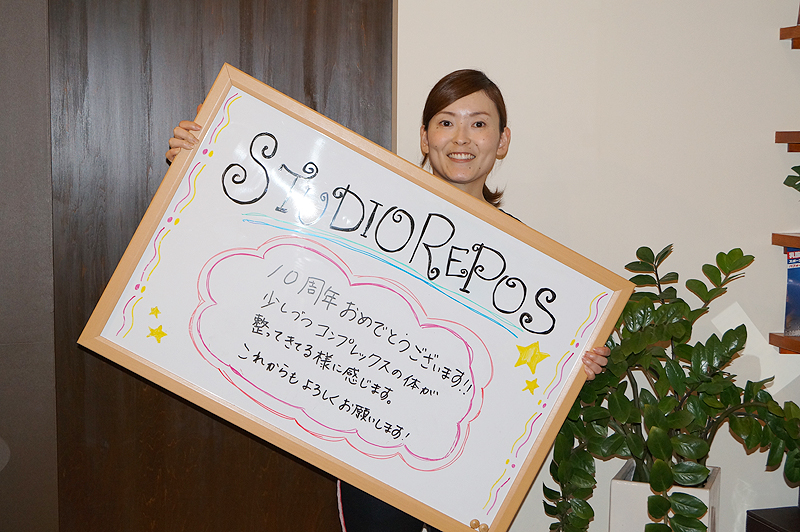 STUDIO REPOS
10周年おめでとうございます!!
少しづつコンプレックスの体が
整ってきてる様に感じます。
これからもよろしくお願いします!